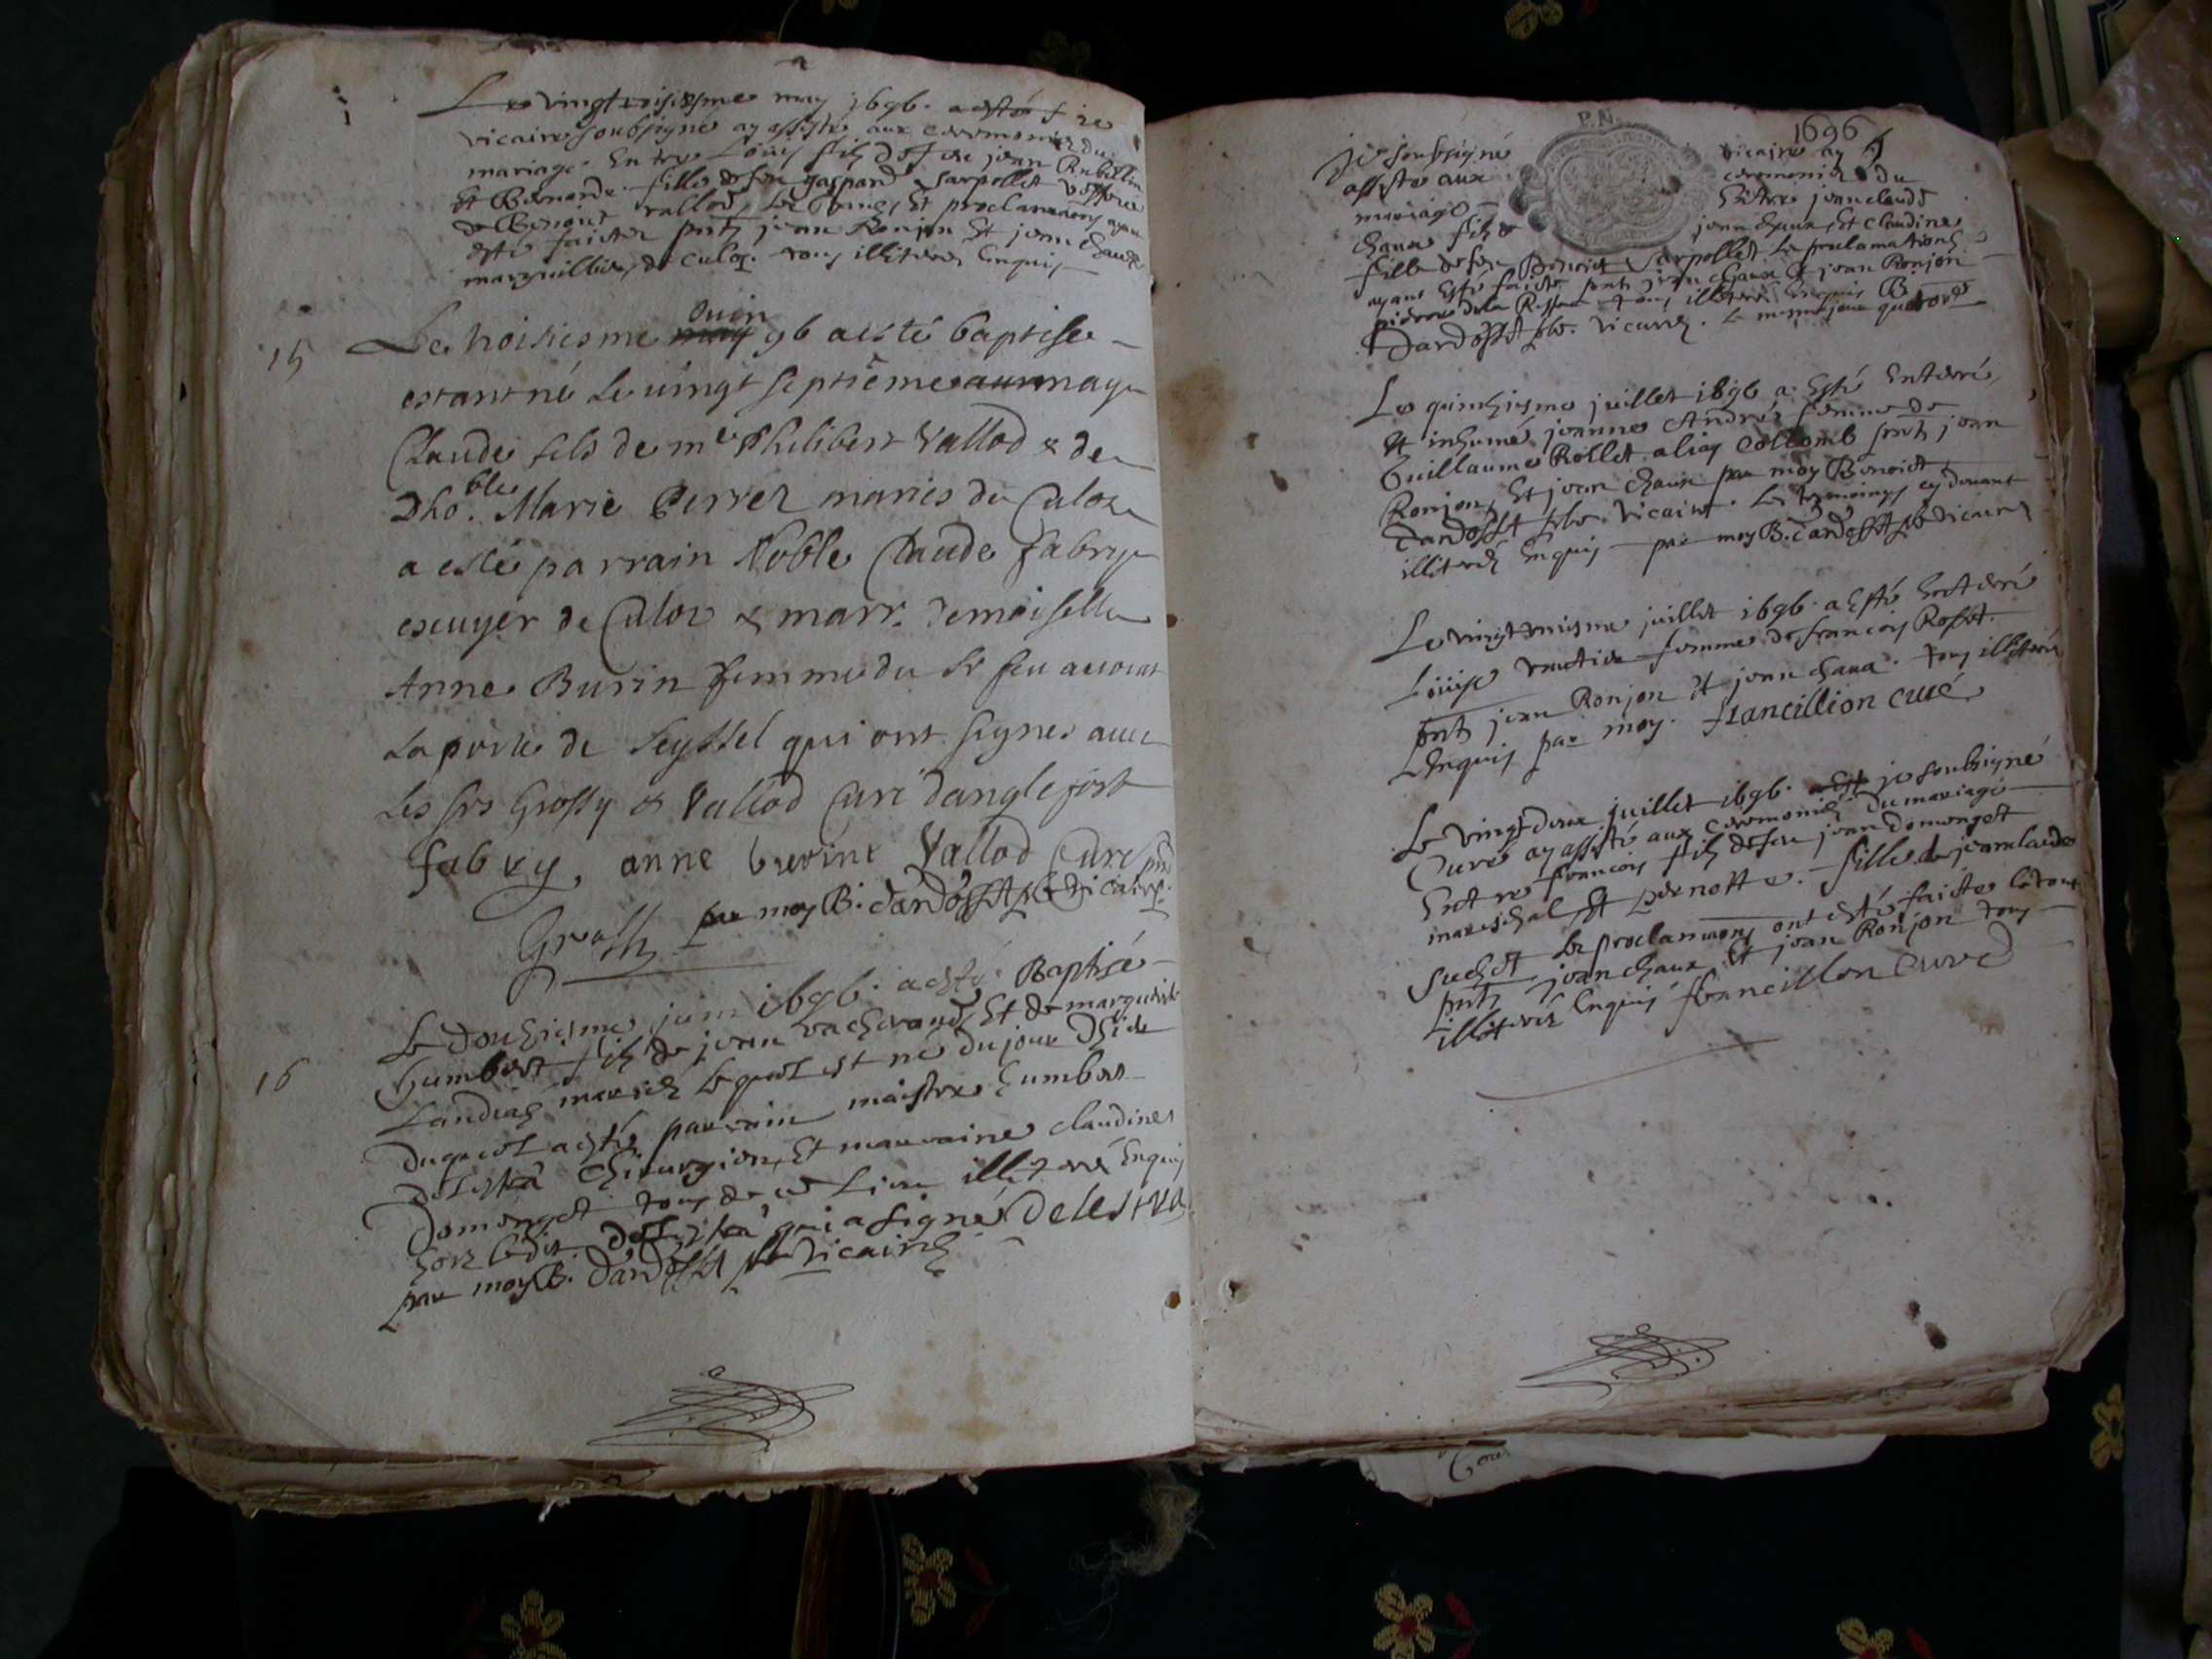 Le vingtroisiesme may 1696. a esté je
vicaire soubsigné ay assisté aux ceremonies du
mariage Entre Loüis filz de feu jean Rubellin
Et Bernarde fille de feu gaspard Sarpollet
de Benoict vallod, les bancs Et proclamaons ayant
esté faictes pnts jean Ronjon Et jean chaux
marguilliers de culoz. tous illiteres Enquis
15
Le troisiesme may Ouin 96 a esté baptisé
estant né le vingt septiême may
Claude fils de me Philibert Vallod & de
Dho.ble Marie Perrer mariés du Culoz
a esté parrain Noble Claude fabry
escuyer de Culoz & marr. demoiselle
Anne Burin femme du Sr feu avocat
Laporte de Seyssel qui ont signes avec
les srs Grossy & Vallod Curé danglefort
fabry, anne burine Vallod Curé pnt
Grossy par moy B. dardosset pbr vicaire
16
Le douziesme juin 1696. a esté Baptisé
humbert filz de jean vacherand Et de marguerite
Landraz mariez lequel est né du jour d'hier
duquel a esté parrain maistre humbert
delestra chirurgien, Et marraine claudine
domenget tous de ce Lieu illiteré Enquis
horz ledit delestra qui a signé Delestra
par moy B. dardosset pbr vicaire
P.N.
1696
je soubsigné vicaire ay
assisté aux ceremonies du
mariage Entre jean claude
chaux filz de jean chaux, Et claudine
fille de feu Benoict Sarpollet les proclamations
ayant Esté faicte pnts jean chaux Et jean Ronjon
tous illiteres Enquis B.
dardosset pbr. vicaire. le mesme jour
Le quinziesme juillet 1696 a Esté Enterré
Et inhumé jeanne André femme de
Guillaume Rollet alias collomb pnts jean
Ronjon, Et jean chaux par moy Benoict
dardosset pbr. vicaire. Les tesmoings cy devant
illiterés Enquis par moy B. dardosset pbr vicaire
Le vingtuniesme juillet 1696. a Esté Enterré
Loüise femme de francois Rosset.
pnts jean Ronjon Et jean chaux. tous illiterés
Enquis par moy. francillion curé
Le vingtdeux juillet 1696. a Esté je soubsigné
Curé ay assisté aux ceremonies du mariage
Entre francois filz de feu jean domenget
mareschal Et pernette fille de jeanclaude
Suchet les proclamaons ont esté faictes
pnts jean chaux Et jean Ronjon tous
illiterés Enquis francillon Curé